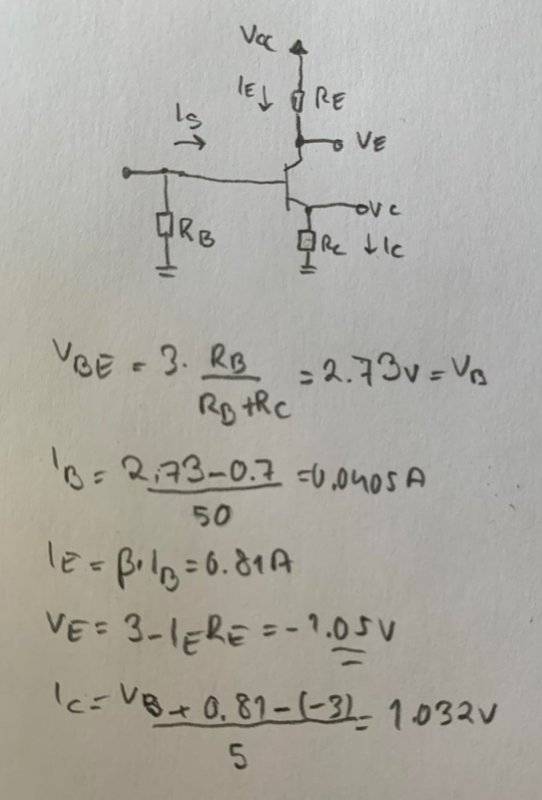 Vcc
IE↓ RE
IS → VE
VC
RB RC ↓IC
VBE = 3 · RB / (RB + RC) = 2.73V = VB
IB = (2.73 - 0.7) / 50 = 0.0405A
IE = β · IB = 0.81A
VE = 3 - IERE = -1.05V
IC = (VB + 0.81 - (-3)) / 5 = 1.032V